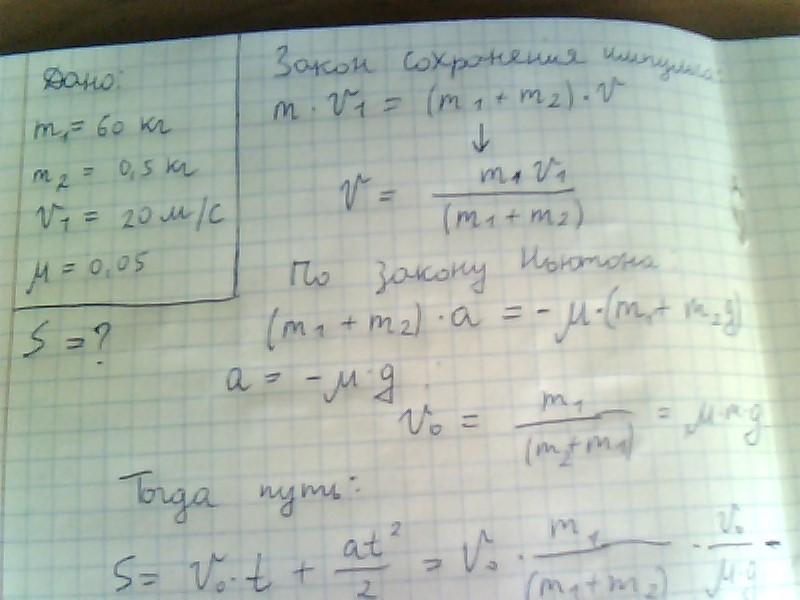 Дано:
m₁ = 60 кг
m₂ = 0,5 кг
v₁ = 20 м/с
μ = 0,05
S = ?
Закон сохранения импульса:
m · v₁ = (m₁ + m₂) · v
↓
v = m₁ v₁ / (m₁ + m₂)
По закону Ньютона
(m₁ + m₂) · a = - μ · (m₁ + m₂g)
a = - μ · g
v₀ = m₁ / (m₂ + m₁) = μ · m · g
Тогда путь:
S = v₀ · t + at² / 2 = v₀ · m₁ / (m₁ + m₂) · v₀ / μ · g -